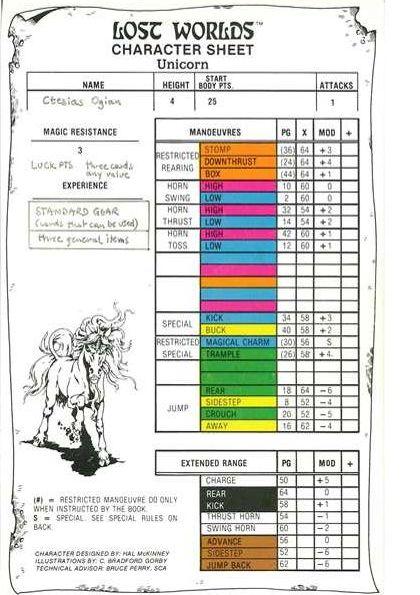 LOST WORLDS™
CHARACTER SHEET
Unicorn
NAME HEIGHT START BODY PTS. ATTACKS
Ctesias Ogian 4 25 1
MAGIC RESISTANCE
3
LUCK PTS three cards
any value
EXPERIENCE
STANDARD GEAR
(cards that can be used)
three general items
MANOEUVRES PG X MOD +
RESTRICTED REARING
STOMP (36) 64 +3
DOWNTHRUST (24) 64 +4
BOX (44) 64 +1
HORN SWING
HIGH 10 60 0
LOW 2 60 0
HORN THRUST
HIGH 32 54 +2
LOW 14 54 +2
HORN TOSS
HIGH 42 60 +1
LOW 12 60 +1
SPECIAL
KICK 34 58 +3
BUCK 40 58 +2
RESTRICTED SPECIAL
MAGICAL CHARM (30) 56 S
TRAMPLE (26) 58 +4
JUMP
REAR 18 64 -6
SIDESTEP 8 52 -4
CROUCH 20 52 -5
AWAY 16 62 -4
EXTENDED RANGE PG MOD +
CHARGE 50 +5
REAR 64 0
KICK 58 +1
THRUST HORN 54 -1
SWING HORN 60 -2
ADVANCE 56 0
SIDESTEP 52 -6
JUMP BACK 62 -6
(#) = RESTRICTED MANOEUVRE DO ONLY
WHEN INSTRUCTED BY THE BOOK.
S = SPECIAL. SEE SPECIAL RULES ON
BACK.
CHARACTER DESIGNED BY: HAL McKINNEY
ILLUSTRATIONS BY: C. BRADFORD GORBY
TECHNICAL ADVISOR: BRUCE PERRY, SCA